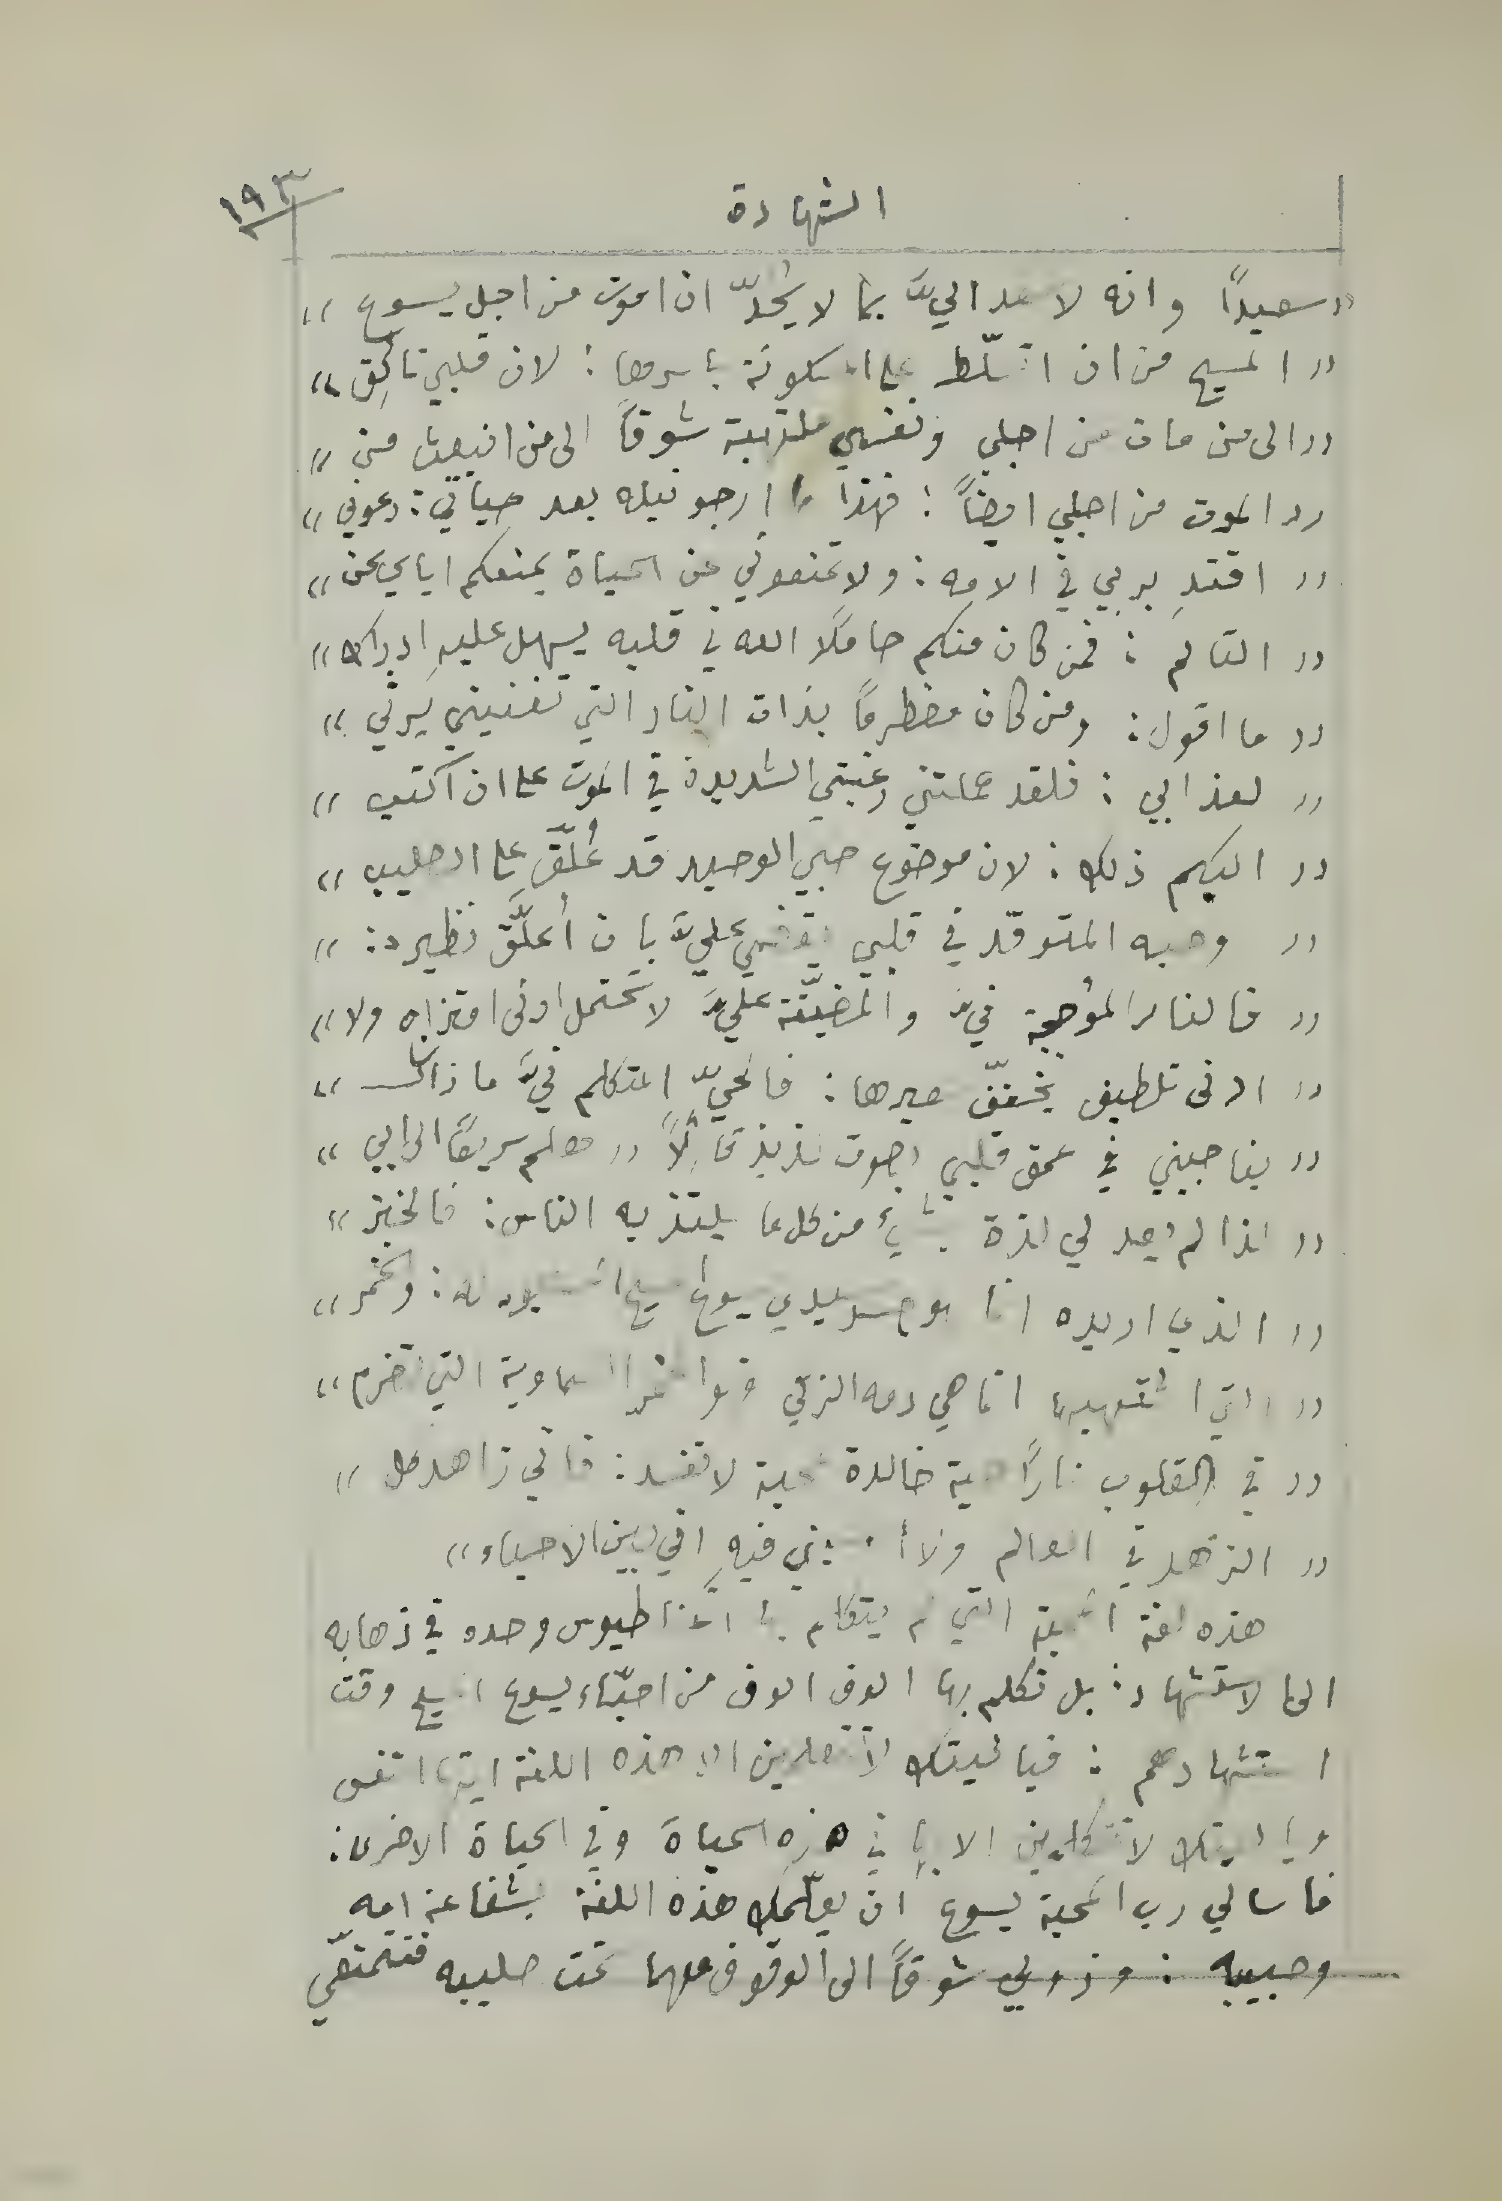 ١٩٣
الشهادة
„ سعيدًا وانه لا اليَّ بما لا يُحدّ ان اموت من اجل يسوع „
„ المسيح من ان اتسلّط على المسكونة باسرها : لان قلبي تائق „
„ الى من مات من اجلي ونفسي ملتهبة شوقًا الى من انبعث من „
„ الموت من اجلي ايضًا : فهذا ما ارجو نيله بعد حياتي : دعوني „
„ اقتدِ بربي في الامه : ولا تمنعوني عن الحياة بمنعكم اياي عن „
„ التالم : فمن كان منكم حاملًا الله في قلبه يسهل عليهِ ادراك „
„ ما اقول : ومن كان مضطرمًا بذات النار التي تفنيني يرثي „
„ لعذابي : فلقد حملتني رغبتي الشديدة في الموت على ان اكتب „
„ اليكم ذلك : لان موضوع حبي الوحيد قد عُلّقَ على الصليب „
„ وحبه المتوقّد في قلبي يقضي عليَّ بان أُعلَّق نظيره : „
„ فالنار المؤججة فيَّ والمضيّقة عليَّ لا تحتمل ادنى امتزاج ولا „
„ ادنى تلطيف يخفّف حرها : فالحيّ المتكلم فيَّ ما زال „
„ يناجيني في عمق قلبي بصوت لذيذ قائلًا „ هلم سريعًا الى ابي „
„ لذا لم يعد لي لذة بشيء من كل ما يلتذ به الناس : فالخبز „
„ الذي اريده انما هو جسد سيدي يسوع المسيح : والخمر „
„ التي اشتهيها انما هي دمه الزكي الخمرة السماوية التي تضرم „
„ في القلوب نارًا حية خالدة لا تفسد : فاني زاهد كل „
„ الزهد في العالم ولا فيهِ اني بين الاحياء „
هذه لغة المحبة التي لم يتكلم بها اغناطيوس وحده في ذهابه
الى الاستشهاد : بل تكلم بها الوف الوف من احبّاء يسوع المسيح وقت
استشهادهم : فيا ليتك لا تتعلمين الا هذه اللغة ايتها النفس
ويا ليتك لا تتكلمين الا بها في هذه الحياة وفي الحياة الاخرى :
فاسالي رب المحبة يسوع ان يعلّمك هذه اللغة بشفاعة امه
وحبيبه : وذوبي شوقًا الى الوقوف معهما تحت صليبه فتتمتعّي